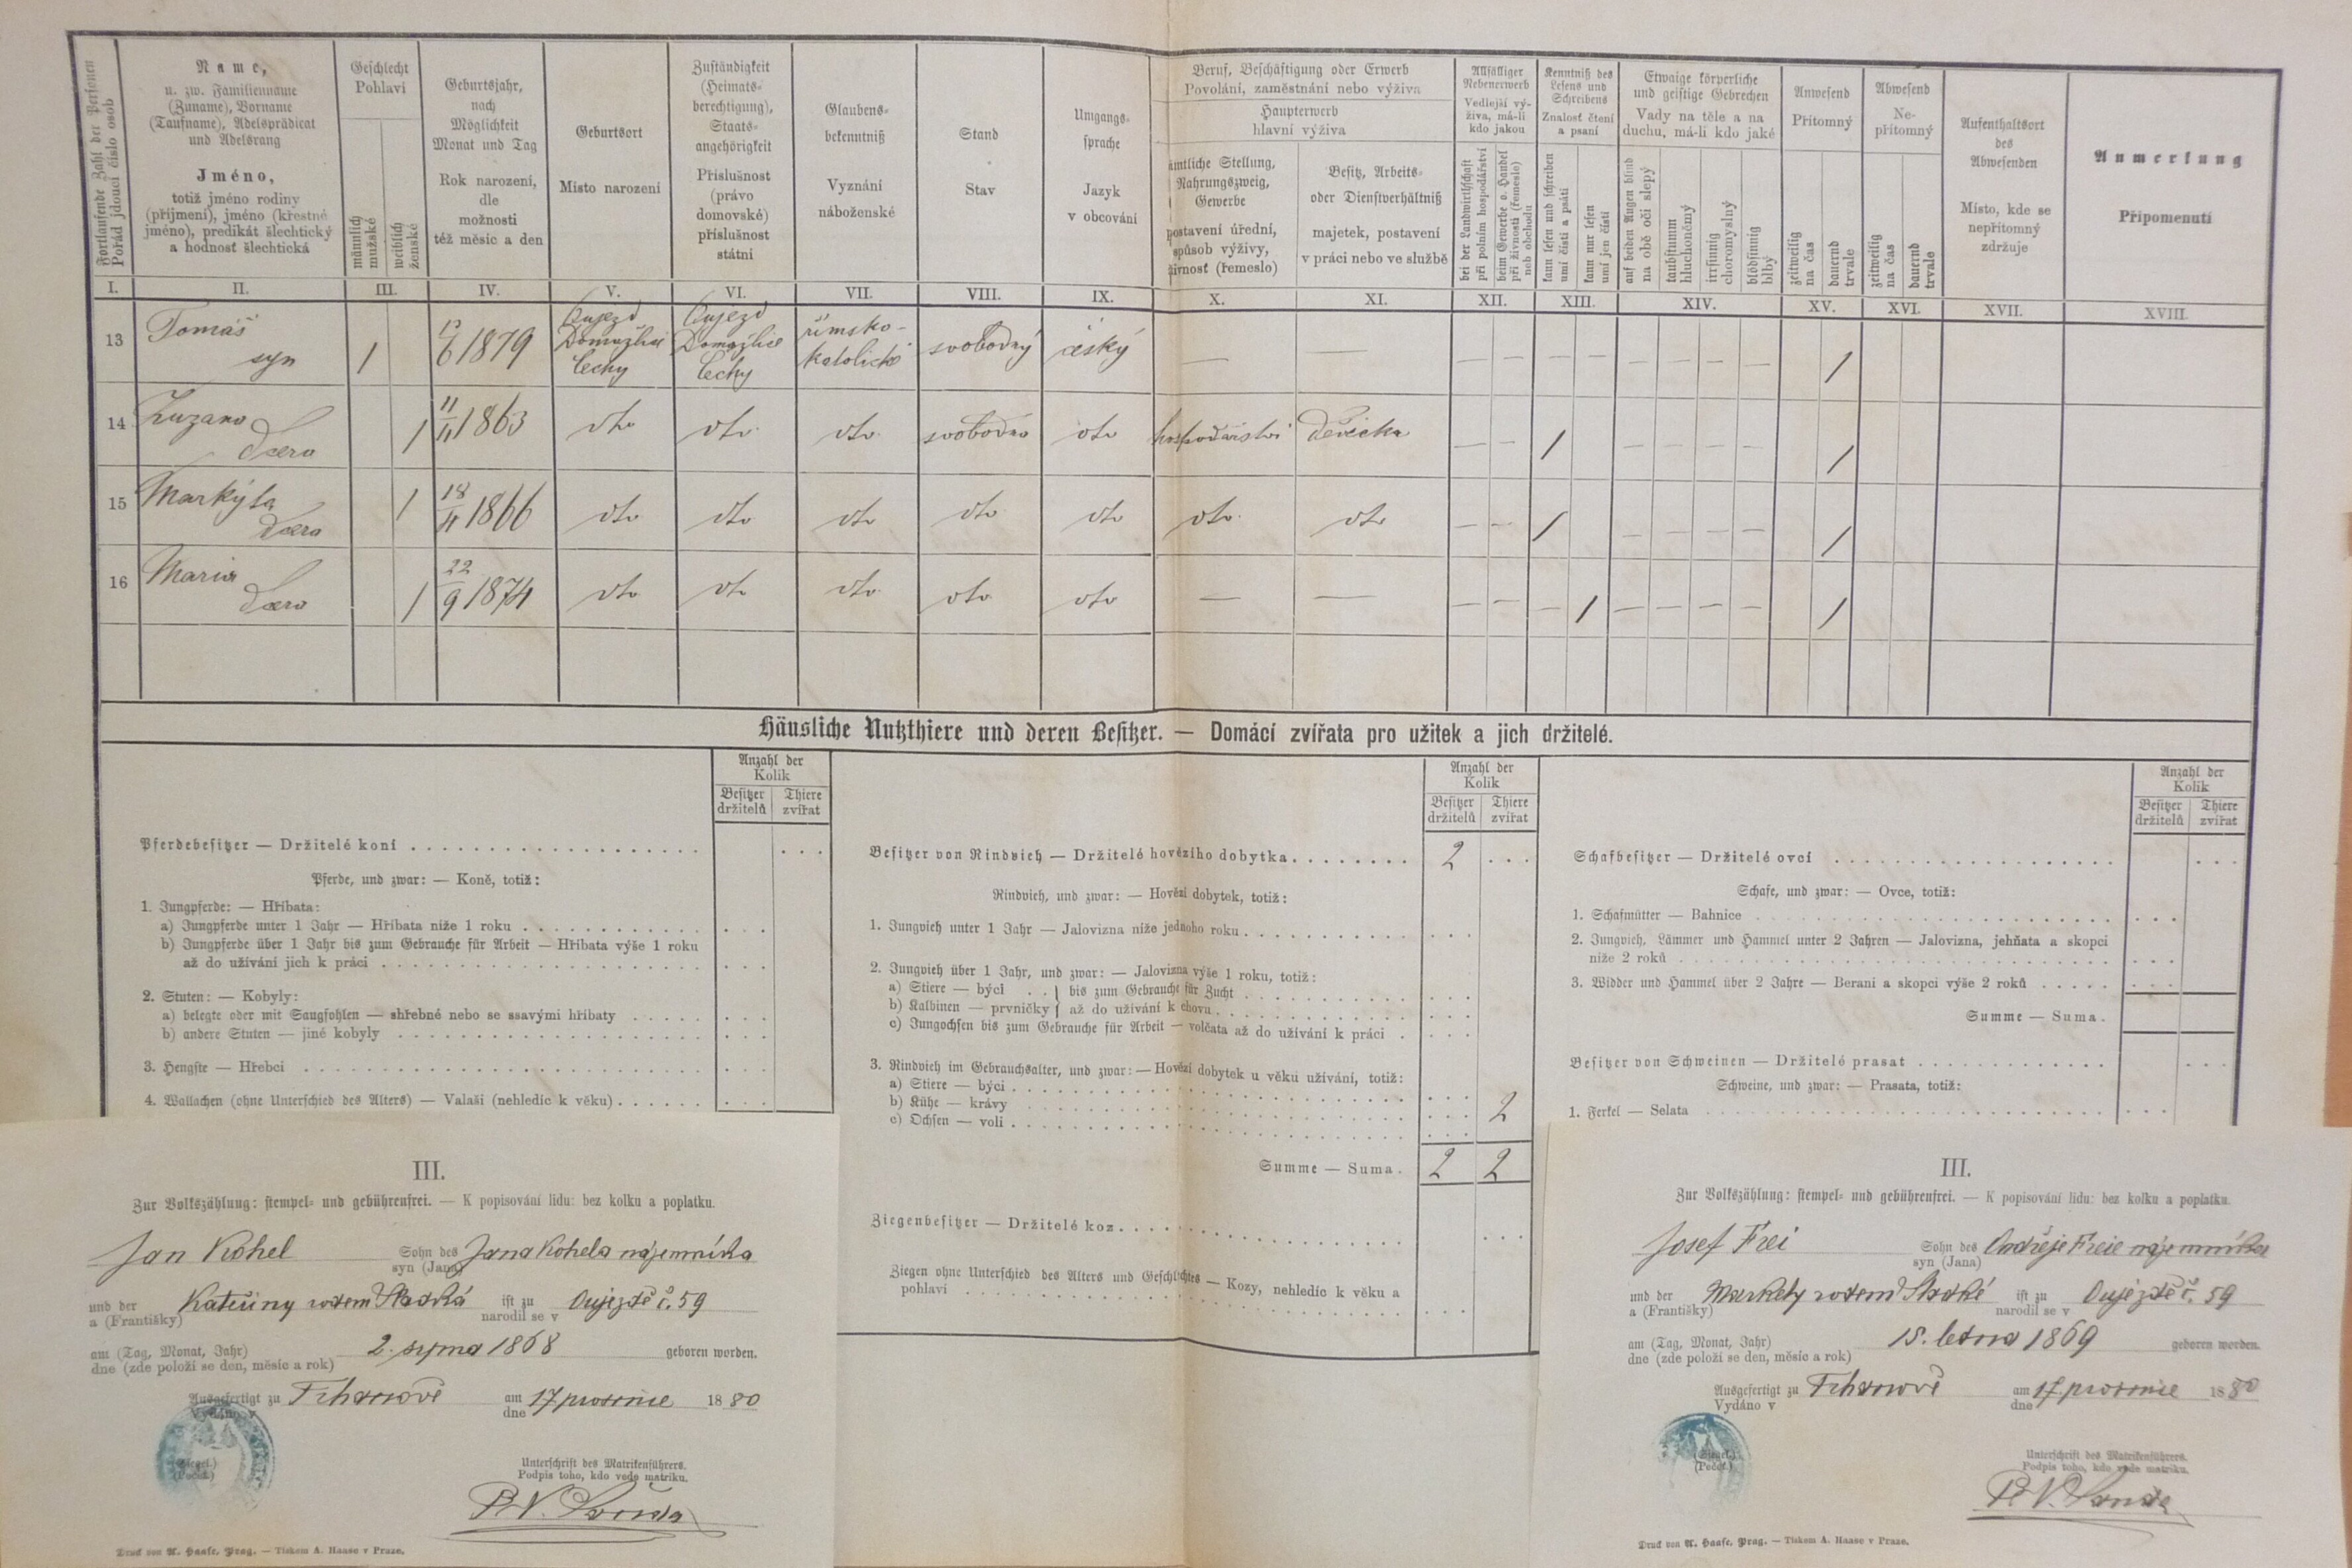 Fortlaufende Zahl der Personen
Pořád jdoucí číslo osob
Name,
u. zw. Familienname
(Zuname), Vorname
(Taufname), Adelsprädicat
und Adelsrang
Jméno,
totiž jméno rodiny
(příjmení), jméno (křestné
jméno), predikát šlechtický
a hodnost šlechtická
Geschlecht
Pohlaví
männlich
mužské
weiblich
ženské
Geburtsjahr,
nach
Möglichkeit
Monat und Tag
Rok narození,
dle
možnosti
též měsíc a den
Geburtsort
Místo narození
Zuständigkeit
(Heimats-
berechtigung),
Staats-
angehörigkeit
Příslušnost
(právo
domovské)
příslušnost
státní
Glaubens-
bekenntniß
Vyznání
náboženské
Stand
Stav
Umgangs-
sprache
Jazyk
v obcování
Beruf, Beschäftigung oder Erwerb
Povolání, zaměstnání nebo výživa
Haupterwerb
hlavní výživa
ämtliche Stellung,
Nahrungszweig,
Gewerbe
postavení úřední,
spůsob výživy,
živnost (řemeslo)
Besitz, Arbeits-
oder Dienstverhältniß
majetek, postavení
v práci nebo ve službě
Allfälliger
Nebenerwerb
Vedlejší vý-
živa, má-li
kdo jakou
bei der Landwirthschaft
při polním hospodářství
beim Gewerbe o. Handel
při živnosti (řemesle)
neb obchodu
Kenntniß des
Lesens und
Schreibens
Znalosť čtení
a psaní
kann lesen und schreiben
umí čísti a psáti
kann nur lesen
umí jen čísti
Etwaige körperliche
und geistige Gebrechen
Vady na těle a na
duchu, má-li kdo jaké
auf beiden Augen blind
na obě oči slepý
taubstumm
hluchoněmý
irrsinnig
choromyslný
blödsinnig
blbý
Anwesend
Přítomný
zeitweilig
na čas
dauernd
trvale
Abwesend
Ne-
přítomný
zeitweilig
na čas
dauernd
trvale
Aufenthaltsort
des
Abwesenden
Místo, kde se
nepřítomný
zdržuje
Anmerkung
Připomenutí
I. II. III. IV. V. VI. VII. VIII. IX. X. XI. XII. XIII. XIV. XV. XVI. XVII. XVIII.
13 Tomáš syn 1 6 1879 Oujezd Domažlice Čechy Oujezd Domažlice Čechy římsko-katolické svobodný český — — — — — — — — — — 1
14 Zuzana dcera 1 11/11 1863 dto dto dto svobodna dto hospodářství děvečka — — 1 — — — — 1
15 Markýta dcera 1 18/11 1866 dto dto dto dto dto dto dto — — 1 — — — — 1
16 Maria dcera 1 22/9 1874 dto dto dto dto dto — — — — — 1 — — — — 1
Häusliche Nutzthiere und deren Besitzer. — Domácí zvířata pro užitek a jich držitelé.
Anzahl der
Kolik
Besitzer
držitelů
Thiere
zvířat
Pferdebesitzer — Držitelé koní
Pferde, und zwar: — Koně, totiž:
1. Jungpferde: — Hříbata:
a) Jungpferde unter 1 Jahr — Hříbata níže 1 roku
b) Jungpferde über 1 Jahr bis zum Gebrauche für Arbeit — Hříbata výše 1 roku
až do užívání jich k práci
2. Stuten: — Kobyly:
a) belegte oder mit Saugfohlen — shřebné nebo se ssavými hříbaty
b) andere Stuten — jiné kobyly
3. Hengste — Hřebci
4. Wallachen (ohne Unterschied des Alters) — Valaši (nehledíc k věku)
Anzahl der
Kolik
Besitzer
držitelů
Thiere
zvířat
Besitzer von Rindvieh — Držitelé hovězího dobytka 2
Rindvieh, und zwar: — Hovězí dobytek, totiž:
1. Jungvieh unter 1 Jahr — Jalovizna níže jednoho roku
2. Jungvieh über 1 Jahr, und zwar: — Jalovizna výše 1 roku, totiž:
a) Stiere — býci . . } bis zum Gebrauche für Zucht
b) Kalbinen — prvničky } až do užívání k chovu
c) Jungochsen bis zum Gebrauche für Arbeit — volčata až do užívání k práci
3. Rindvieh im Gebrauchsalter, und zwar: — Hovězí dobytek u věku užívání, totiž:
a) Stiere — býci
b) Kühe — krávy 2
c) Ochsen — voli
Summe — Suma. 2 2
Ziegenbesitzer — Držitelé koz
Ziegen ohne Unterschied des Alters und Geschlechtes — Kozy, nehledíc k věku a
pohlaví
Anzahl der
Kolik
Besitzer
držitelů
Thiere
zvířat
Schafbesitzer — Držitelé ovcí
Schafe, und zwar: — Ovce, totiž:
1. Schafmütter — Bahnice
2. Jungvieh, Lämmer und Hammel unter 2 Jahren — Jalovizna, jehňata a skopci
níže 2 roků
3. Widder und Hammel über 2 Jahre — Berani a skopci výše 2 roků
Summe — Suma.
Besitzer von Schweinen — Držitelé prasat
Schweine, und zwar: — Prasata, totiž:
1. Ferkel — Selata
III.
Zur Volkszählung: stempel- und gebührenfrei. — K popisování lidu: bez kolku a poplatku.
Jan Kohel Sohn des Jana Kohela nájemníka
syn (Jana)
und der Kateřiny rodem Sladká ist zu Oujezdě č. 59
a (Františky) narodil se v
am (Tag, Monat, Jahr) 2. srpna 1868 geboren worden.
dne (zde položí se den, měsíc a rok)
Ausgefertigt zu Trhanově am 17 prosince 1880
Vydáno v dne
(Siegel.)
(Pečeť.)
Unterschrift des Matrikenführers.
Podpis toho, kdo vede matriku.
Druck von A. Haase, Prag. — Tiskem A. Haase v Praze.
III.
Zur Volkszählung: stempel- und gebührenfrei. — K popisování lidu: bez kolku a poplatku.
Josef Frei Sohn des Ondřeje Freie nájemníka
syn (Jana)
und der Markety rodem Sladké ist zu Oujezdě č. 59
a (Františky) narodil se v
am (Tag, Monat, Jahr) 15. ledna 1869 geboren worden.
dne (zde položí se den, měsíc a rok)
Ausgefertigt zu Trhanově am 17 prosince 1880
Vydáno v dne
(Siegel.)
(Pečeť.)
Unterschrift des Matrikenführers.
Podpis toho, kdo vede matriku.
Druck von A. Haase, Prag. — Tiskem A. Haase v Praze.